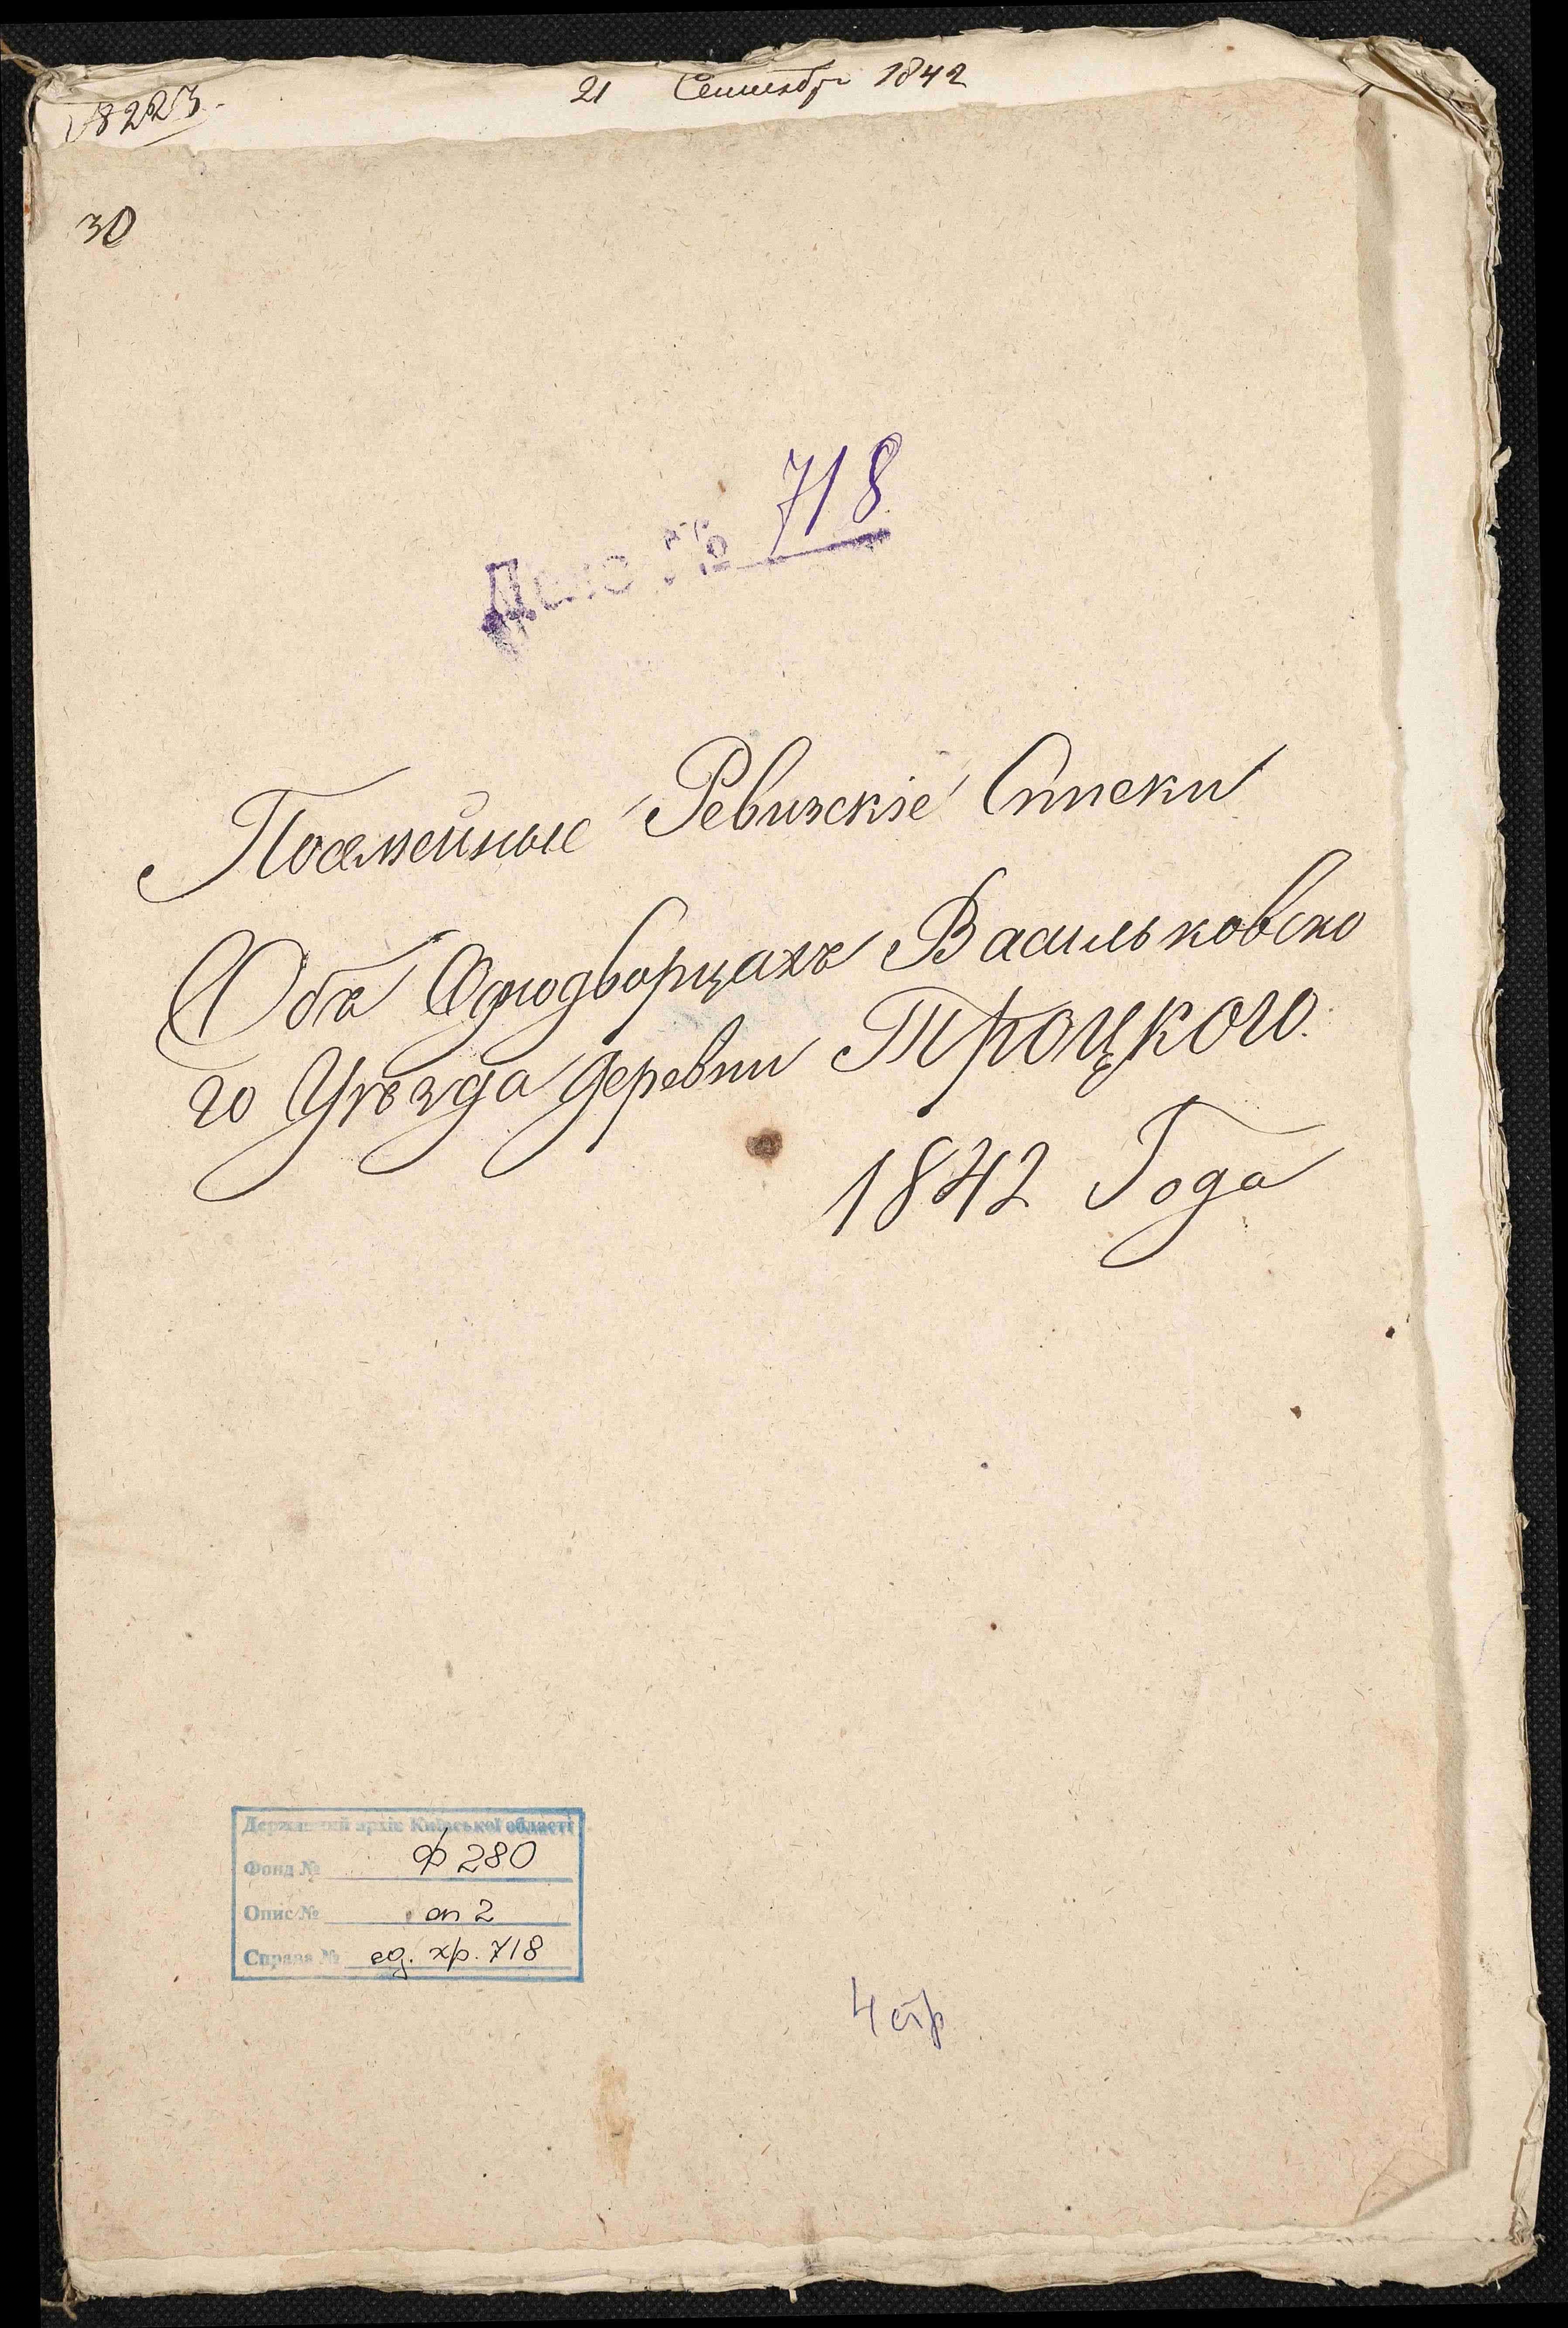 21 Сентября 1842
18223.
30
Дело № 718
Посемейные Ревизскіе Списки
Объ Однодворцахъ Васильковско
го Уѣзда деревни Троцкого.
1842 Года
Державний архів Київської області
Фонд № Ф 280
Опис № оп 2
Справа № ед. хр. 718
4 стр